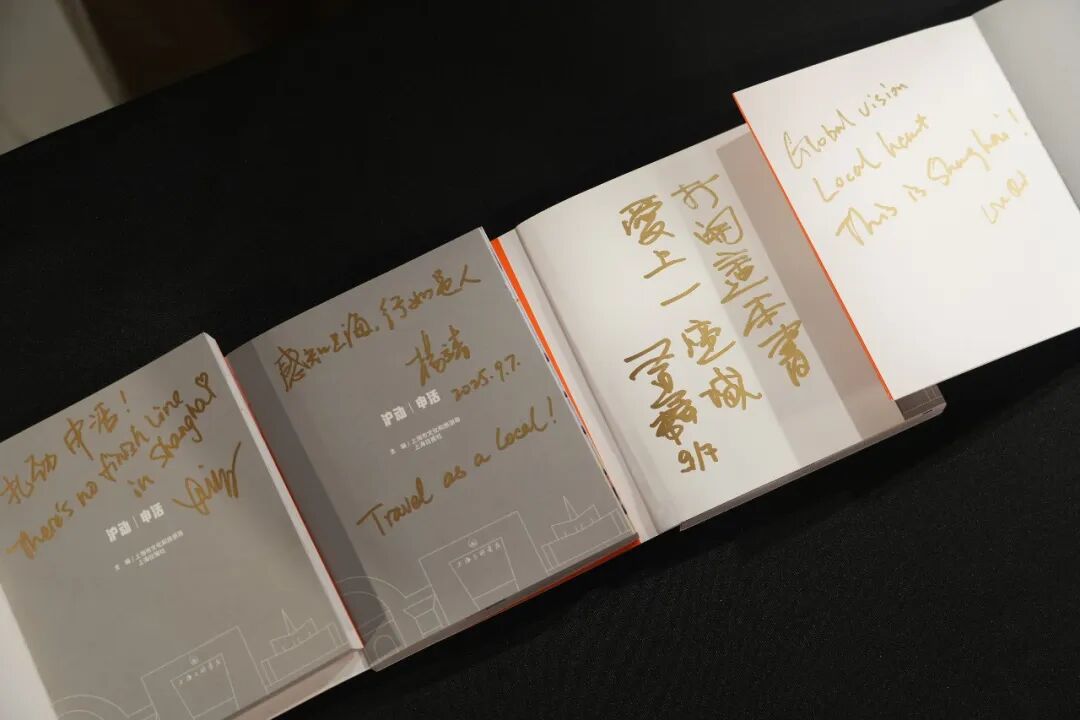 申活!
There's no finish line
in Shanghai♡
沪动|申活
主编|上海市文化和旅游局
上海日报社
上海三联书店
感知上海,行如人
2025.9.7.
沪动|申活
主编|上海市文化和旅游局
上海日报社
Travel as a local!
上海三联书店
打開這本書
愛上一座城
9/7
Global vision
Local heart
This is Shanghai!